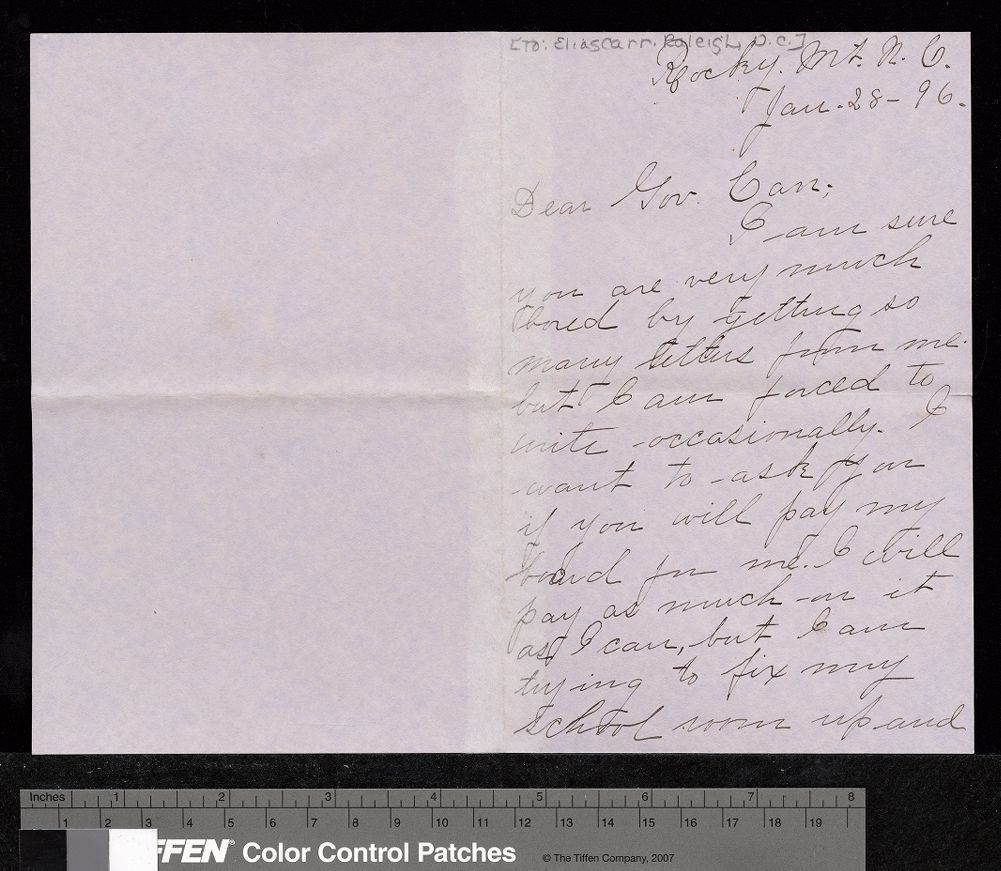 [To: Elias Carr. Raleigh, N.C.]
Rocky. Mt. N. C.
Jan. 28 - 96.
Dear Gov. Carr;
I am sure
you are very much
bored by getting so
many letters from me.
but I am forced to
write occasionally. I
want to ask you
if you will pay my
board for me. I will
pay as much on it
as I can, but I am
trying to fix my
school room up and
Inches 1 2 3 4 5 6 7 8
1 2 3 4 5 6 7 8 9 10 11 12 13 14 15 16 17 18 19
FFEN® Color Control Patches © The Tiffen Company, 2007